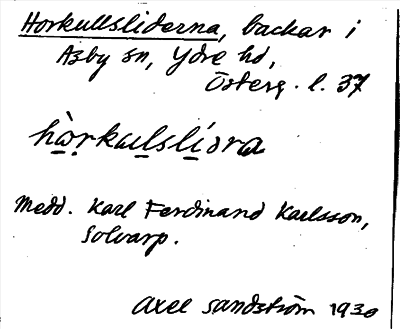 Horkullsliderna, backar i
Asby sn, Ydre hd,
Österg. l. 37
hòrkulslíɔra
Medd. Karl Ferdinand Karlsson,
Solvarp.
Axel Sandström 1930